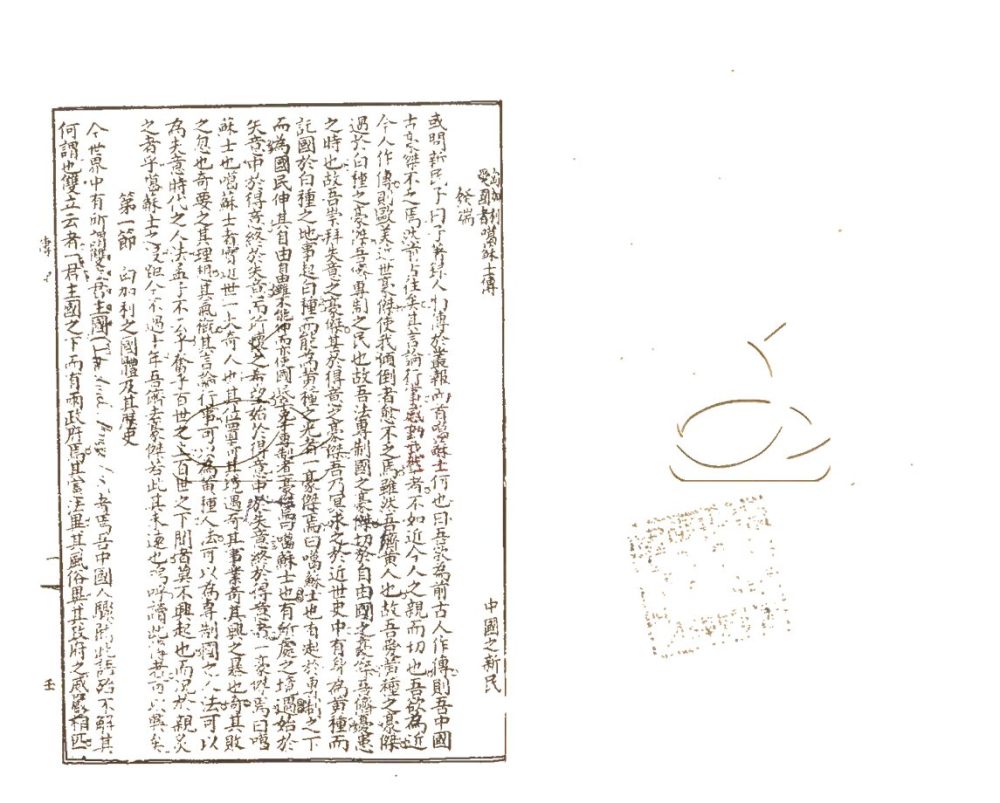 匈加利愛國者噶蘇士傳 中國之新民
發端
或問新民子曰子人物傳於叢報而首噶蘇士何也曰吾欲為前古人作傳則吾中國
古豪傑不乏焉然前古往矣其言論行事感動我輩者不如近今人之親而切也吾欲為近
今人作傳則歐美近世豪傑使我傾倒者愈不乏焉雖然吾儕黃人也故吾愛黃種之豪傑
過於白種之豪傑吾儕專制之民也故吾法專制國之豪傑切於自由國之豪傑吾儕憂患
之時也故吾崇拜失意之豪傑甚於得意之豪傑吾乃冥求之於近世史中有身為黃種而
託國於白種之地事起白種而能為黃種之光者一豪傑焉曰噶蘇士也有起於專制之下
而為國民伸其自由自由雖不能伸而亦使國民卒於專制者一豪傑焉曰噶蘇士也有所處之境遇始於
失意中於得意終於失意而所懷之希望始於得意中於失意終於得意者一豪傑焉曰噶
蘇士也噶蘇士者實近世一大奇人也其位置奇其境遇奇其事業奇其興之暴也奇其敗
之忽也奇要之其理想其氣概其言論行事可以為黃種人法可以為專制國之人法可以
為失意時代之人法孟子不云乎奮乎百世之上百世之下聞者莫不興起也而況於親炙
之者乎噶蘇士之沒距今不過十年吾儕去豪傑若此其未遠也嗚呼讀此傳者可以興矣
第一節 匈加利之國體及其歷史
今世界中有所謂雙立君主國者焉吾中國人驟聞此語殆不解其
何謂也雙立云者一君主國之下而有兩政府焉其憲法異其風俗異其政府之威嚴相匹
傳 一 壬